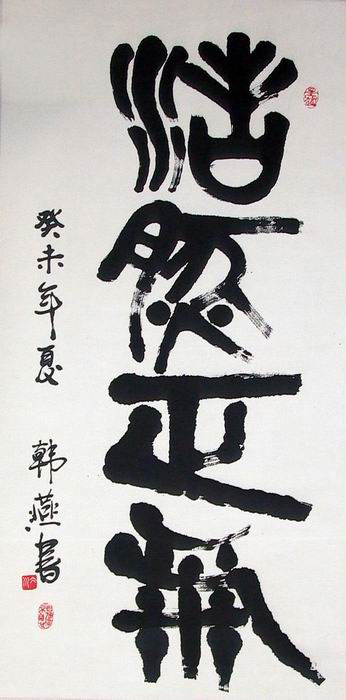 浩然正氣
癸未年夏 韩燕书